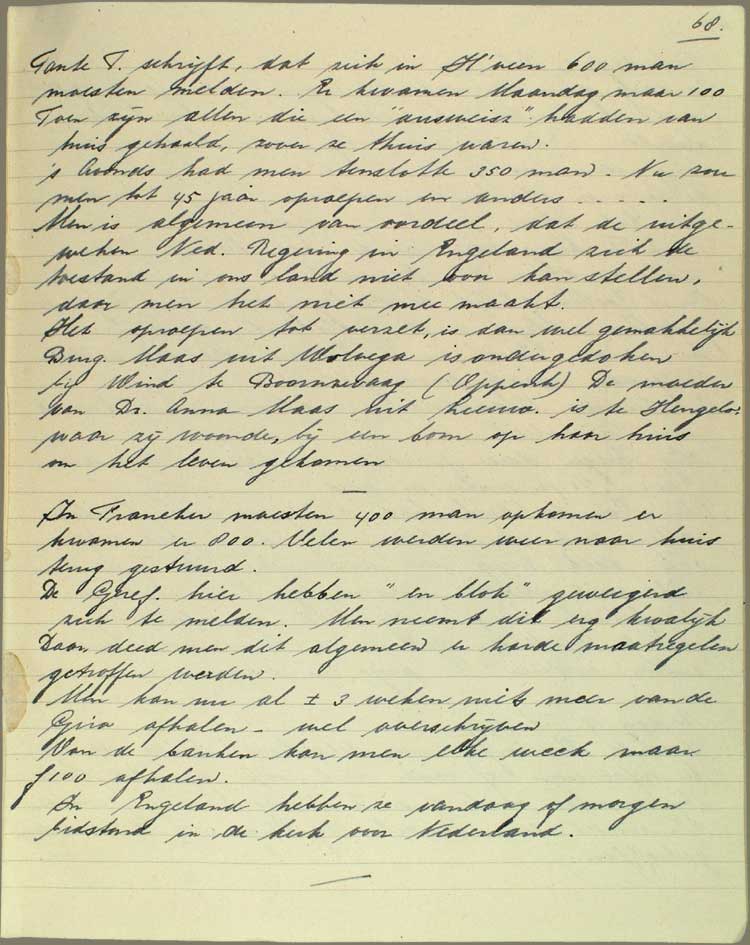 68.
Tante T. schrijft, dat zich in H'veen 600 man
moesten melden. Er kwamen Maandag maar 100
Toen zijn allen die een "ausweisz" hadden van
huis gehaald, zover ze thuis waren.
's Avonds had men tenslotte 350 man. Nu zou
men tot 45 jaar oproepen en anders . . . . .
Men is algemeen van oordeel, dat de uitge-
weken Ned. Regering in Engeland zich de
toestand in ons land niet voor kan stellen,
daar men het niet mee maakt.
Het oproepen tot verzet, is dan wel gemakkelijk
Burg. Maas uit Wolvega is ondergedoken
bij Wind te Boornzwaag (Oppenh) De moeder
van Dr. Anna Maas uit Leeuw. is te Hengelo,
waar zij woonde, bij een bom op haar huis
om het leven gekomen
In Franeker moesten 400 man opkomen er
kwamen er 800. Velen werden weer naar huis
terug gestuurd.
De Geref. hier hebben "en blok" geweigerd
zich te melden. Men neemt dit erg kwalijk
Daar deed men dit algemeen er harde maatregelen
getroffen werden.
Men kan nu al ± 3 weken niets meer van de
Giro afhalen - wel overschrijven
Van de banken kan men elke week maar
f 100 afhalen.
In Engeland hebben ze vandaag of morgen
bidstond in de kerk voor Nederland.